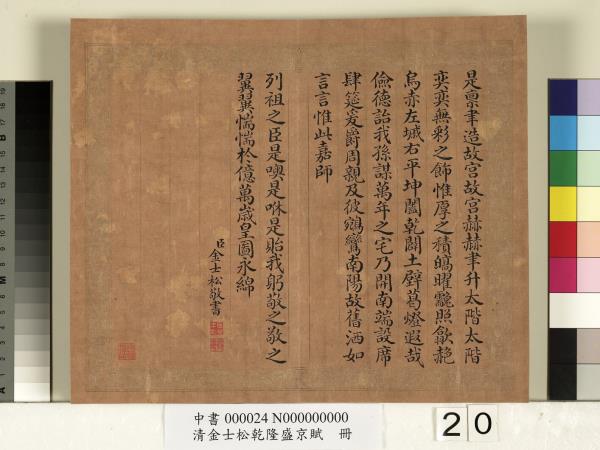 是稟聿造故宮故宮赫赫聿升太階太階
奕奕無彩之飾惟厚之積皜曜龗照歙赩
烏赤左墄右平坤闔乾闢土壁葛燈遐哉
儉德詒我孫謀萬年之宅乃開南端設席
肆筵爰爵周親及彼鵷鸞南陽故舊洒如
言言惟此嘉師
列祖之臣是噢是咻是貽我躬敬之敬之
翼翼惴惴於億萬歲皇圖永綿
臣金士松敬書
中書 000024 N000000000
清金士松乾隆盛京賦 冊
20